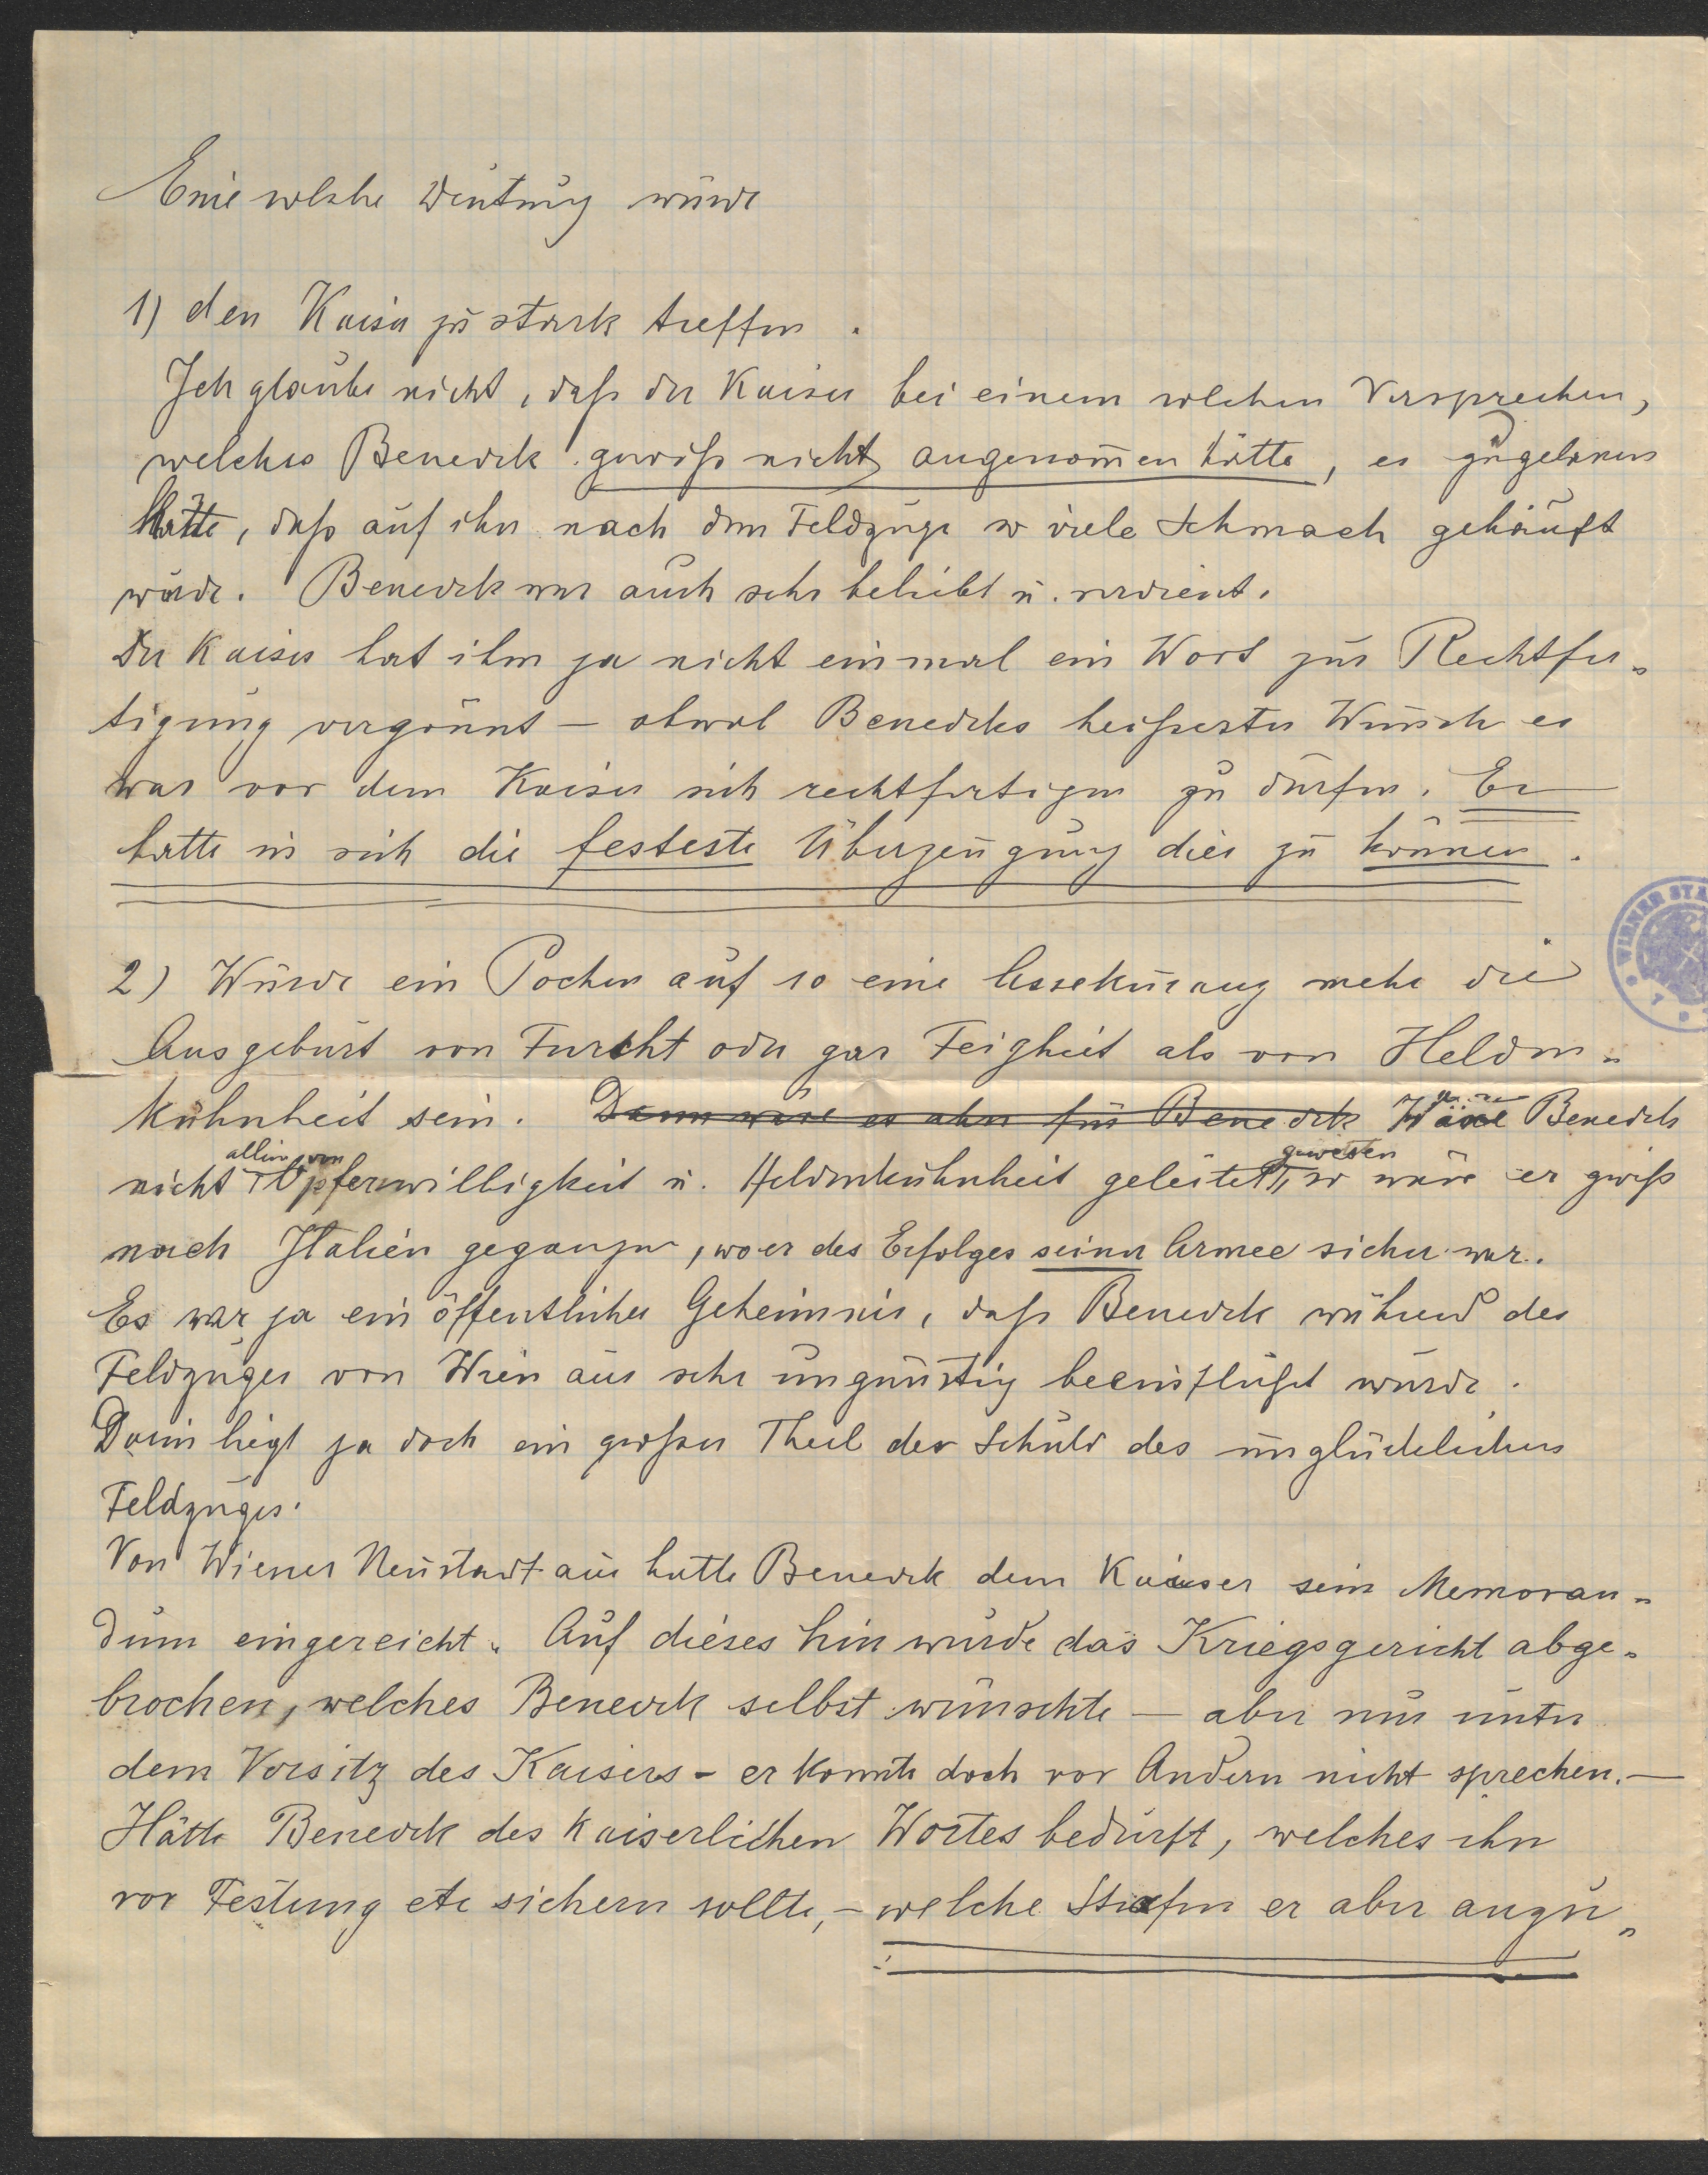 Eine solche Deutung würde
1) den Kaiser zu stark treffen.
Ich glaube nicht, daß der Kaiser bei einem solchen Versprechen,
welches Benedek gewiß nicht angenom̄en hätte, es zugelassen
hätte, daß auf ihn nach dem Feldzuge so viele Schmach gehäuft
würde. Benedek war auch sehr beliebt u. verdient.
Der Kaiser hat ihm ja nicht einmal ein Wort zur Rechtfer-
tigung vergönnt – obwol Benedeks heißester Wunsch es
war vor dem Kaiser sich rechtfertigen zu dürfen. Er
hatte in sich die festeste Überzeugung dies zu können.
2) Würde ein Pochen auf so eine Assekuranz mehr die
Ausgeburt von Furcht oder gar Feigheit als von Helden-
kühnheit sein. Dann wäre es aber für Benedek Wäre Benedek
nicht allein von Opferwilligkeit u. Heldenkühnheit geleitet gewesen, so wäre er gewiß
nach Italien gegangen, wo er des Erfolges seiner Armee sicher war.
Es war ja ein öffentliches Geheimnis, daß Benedek während des
Feldzuges von Wien aus sehr ungünstig beeinflußt wurde.
Darin liegt ja doch ein großer Theil der Schuld des unglücklichen
Feldzuges.
Von Wiener Neustadt aus hatte Benedek dem Kaiser sein Memoran-
dum eingereicht. Auf dieses hin wurde das Kriegsgericht abge-
brochen, welches Benedek selbst wünschte – aber nur unter
dem Vorsitz des Kaisers – er konnte doch vor Andern nicht sprechen. –
Hätte Benedek des kaiserlichen Wortes bedurft, welches ihn
vor Festung etc sichern sollte, – welche Strafen er aber anzu-
WIENER STA